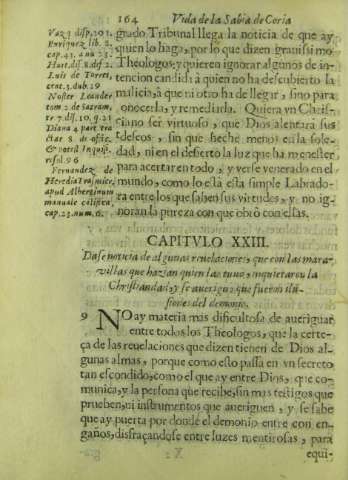 164 Vida de la Sabia de Coria
Vaz. 1 disp. 201.
Enriquez lib. 2.
cap. 43. a nu 23.
Hurt. dif. 8. dif. 2.
Luis de Torres,
cent. 3. dub. 29
Noster Leander
tom 2 de Sacram,
tr 7. disp. 10. q. 21
Diana 4 part tra
ctat 8 de offic.
& potest Inquis.
resol. 96
Fernandez de
Heredia
apud Alberginum
manuale
cap. 23. num. 6.
grado Tribunal llega la noticia de que ay
quien lo haga, por lo que dizen gravissimo
Theologos; y quieren ignorar algunos de in-
tencion candida à quien no ha descubierto la
malicia, à que ni otro ha de llegar, sino para
conocerla, y remediarla. Quiera vn Chris-
ciano ser virtuoso, que Dios alentarà sus
deseos, sin que heche menos en la sole-
dad, ni en el desierto la luz que ha menester
para acertar en todo, y verse venerado en el
mundo, como lo està esta simple Labrado-
ra entre los que saben sus virtudes, y no ig-
noran la pureza con que obrò con ellas.
CAPITVLO XXIII.
Dase noticia de algunas reuelaciones, que con las mara-
villas que hazian quien las tuuo, inquietaron la
Christiandad, y se aueriguò que fueron ilu-
siones del demonio.
9 NO ay materia mas dificultosa de aueriguar
entre todos los Theologos, que la certe-
ça de las reuelaciones que dizen tienen de Dios al-
gunas almas, porque como esto passa en vn secreto
tan escondido, como el que ay entre Dios, que co-
munica, y la persona que recibe, sin mas testigos que
prueben, ni instrumentos que aueriguen, y se sabe
que ay puerta por donde el demonio entre con en-
gaños, disfraçandose entre luzes mentirosas, para
equi-